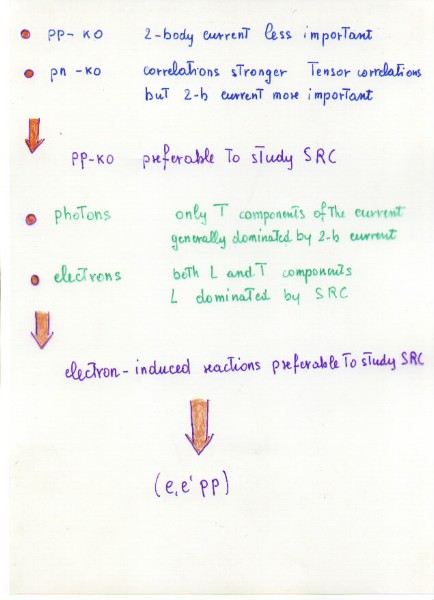 pp-KO 2-body current less important
pn-KO correlations stronger Tensor correlations
but 2-b current more important
pp-KO preferable to study SRC
photons only T components of the current
generally dominated by 2-b current
electrons both L and T components
L dominated by SRC
electron-induced reactions preferable to study SRC
(e,e'pp)